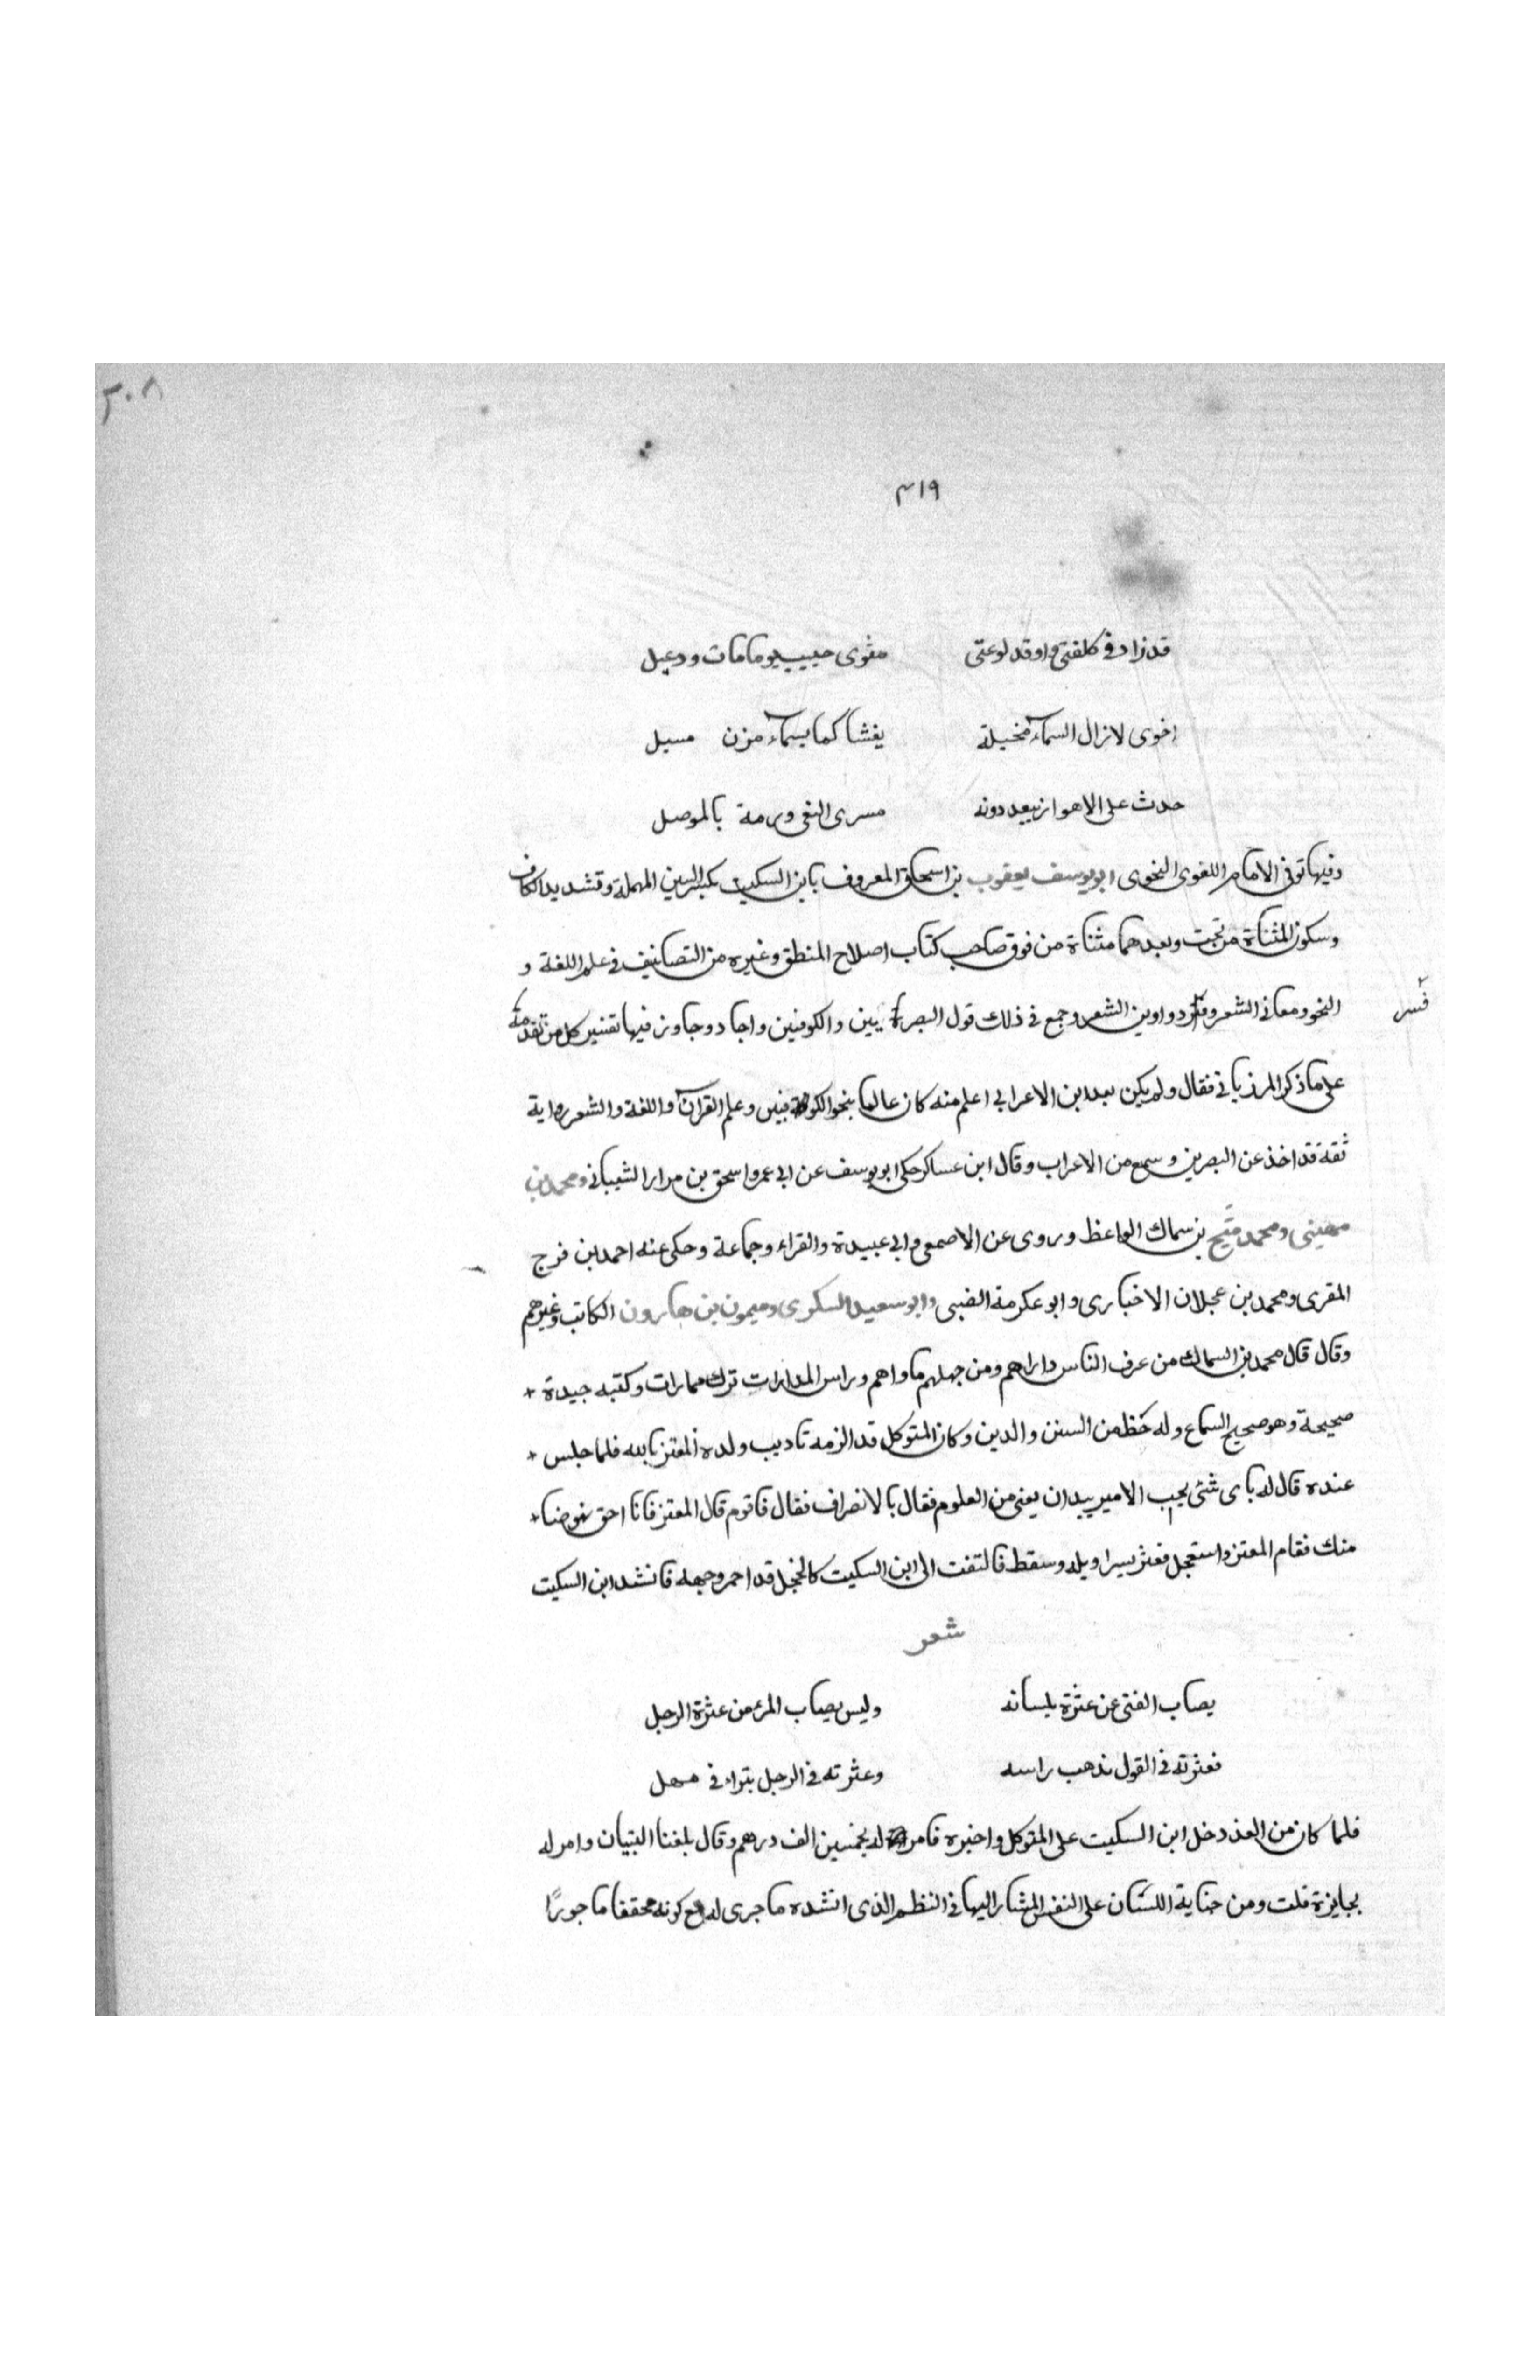 ٣٠٨
٤١٩
قد زاد في كلفتي واوقد لوعتي مثوى حبيب يوما مات ودعبل
اخوى لا تزال السماء مخيلة يغشا كما بسماء مزن مسبل
حدث على الاهواز يبعد دونه مسرى النعى ورمة بالموصل
وفيها توفى الامام اللغوى النحوى ابو يوسف يعقوب بن اسحاق المعروف بابن السكيت بكسر السين المهملة وتشديد الكاف
وسكون المثناة من تحت وبعدهما مثناة من فوق صاحب كتاب اصلاح المنطق وغيره من التصانيف فى علم اللغة و
النحو ومعانى الشعر و دواوين الشعر وجمع فى ذلك قول البصر يين والكوفيين واجاد وجاوز فيها تفسير كل من تقدمه
فسر
على ما ذكر المرزبانى فقال ولم يكن بعد ابن الاعرابى اعلم منه كان عالما بنحو الكوفيين وعلم القرآن واللغة والشعر رواية
ثقة قد اخذ عن البصرين وسمع من الاعراب وقال ابن عساكر حكى ابو يوسف عن ابى عمرو اسحق بن مرار الشيبانى ومحمد بن
مهينى ومحمد صبيح بن سماك الواعظ وروى عن الاصمعى وابى عبيدة والفراء وجماعة وحكى عنه احمد بن فرج
المقرى ومحمد بن عجلان الاخبارى وابو عكرمة الضبى وابو سعيد السكرى وميمون بن هارون الكاتب وغيرهم
وقال قال محمد بن السماك من عرف الناس داراهم ومن جهلهم ماراهم وراس المدارات ترك ممارات وكتبه جيدة +
صحيحة وهو صحيح السماع وله حظ من السنن والدين وكان المتوكل قد الزمه تاديب ولده المعتز بالله فلما جلس +
عنده قال له باى شئى يحب الامير يبدان يعنى من العلوم فقال بالانصراف فقال فاقوم قال المعتز فانا احق نهوضا +
منك فقام المعتز واستعجل فعثر بسراويله وسقط فالتفت الى ابن السكيت كالخجل قد احمر وجهه فانشد ابن السكيت
شعر
يصاب الفتى عن عثرة بلسانه وليس يصاب المرء من عثرة الرجل
فعثرته فى القول تذهب راسه وعثرته فى الرجل تبراء فى مهل
فلما كان من الغد دخل ابن السكيت على المتوكل واخبره فامر له بخمسين الف درهم وقال بلغنا البتيان وامر له
بجايزة قلت ومن جناية اللسان على النفس المشار اليها فى النظم الذى انشده ما جرى له مع كونه محققا ماجورًا